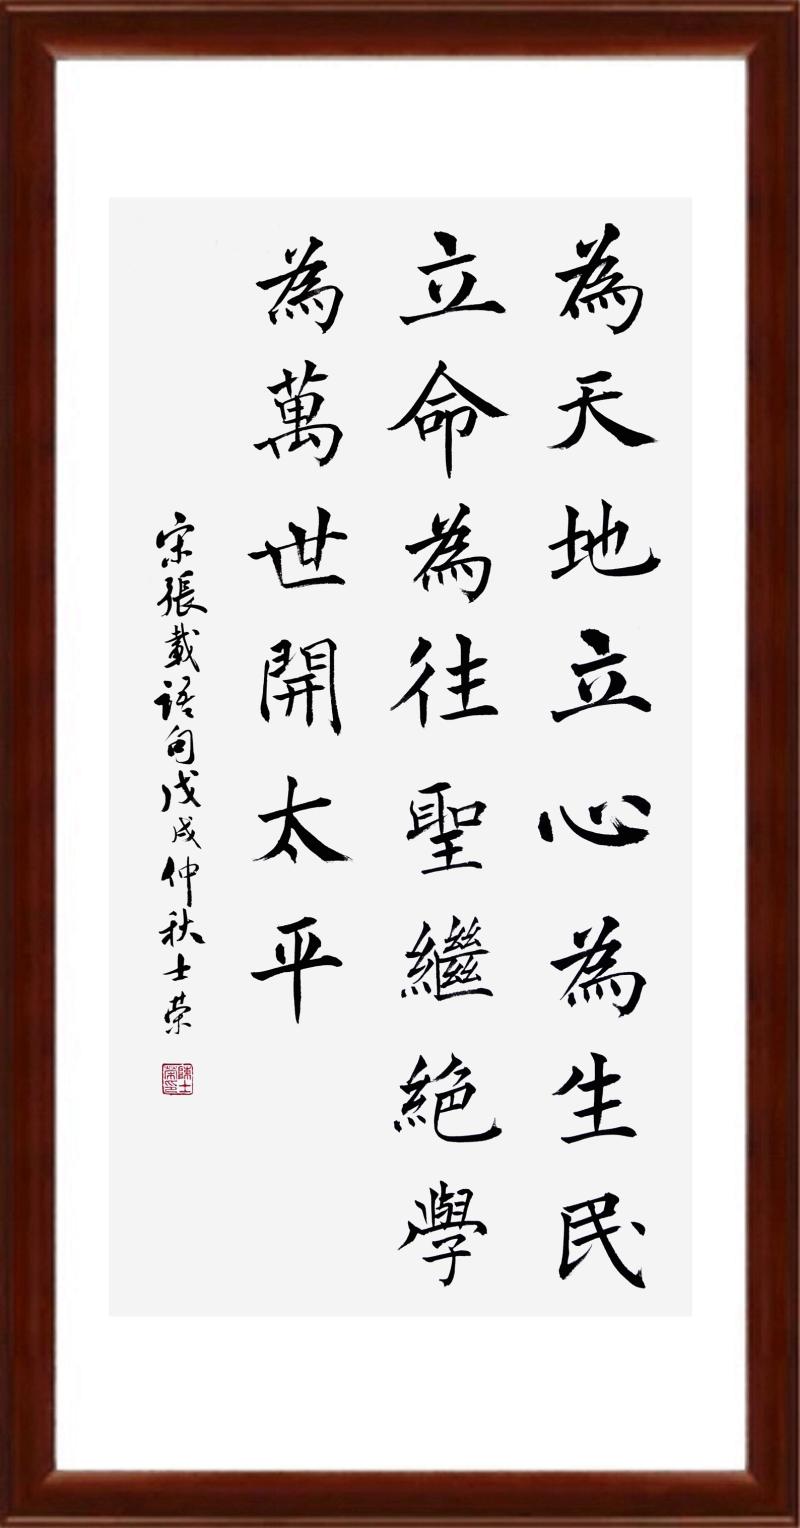 為天地立心為生民
立命為往聖繼絕學
為萬世開太平
宋張載語句戊戌仲秋士荣
陳士榮印